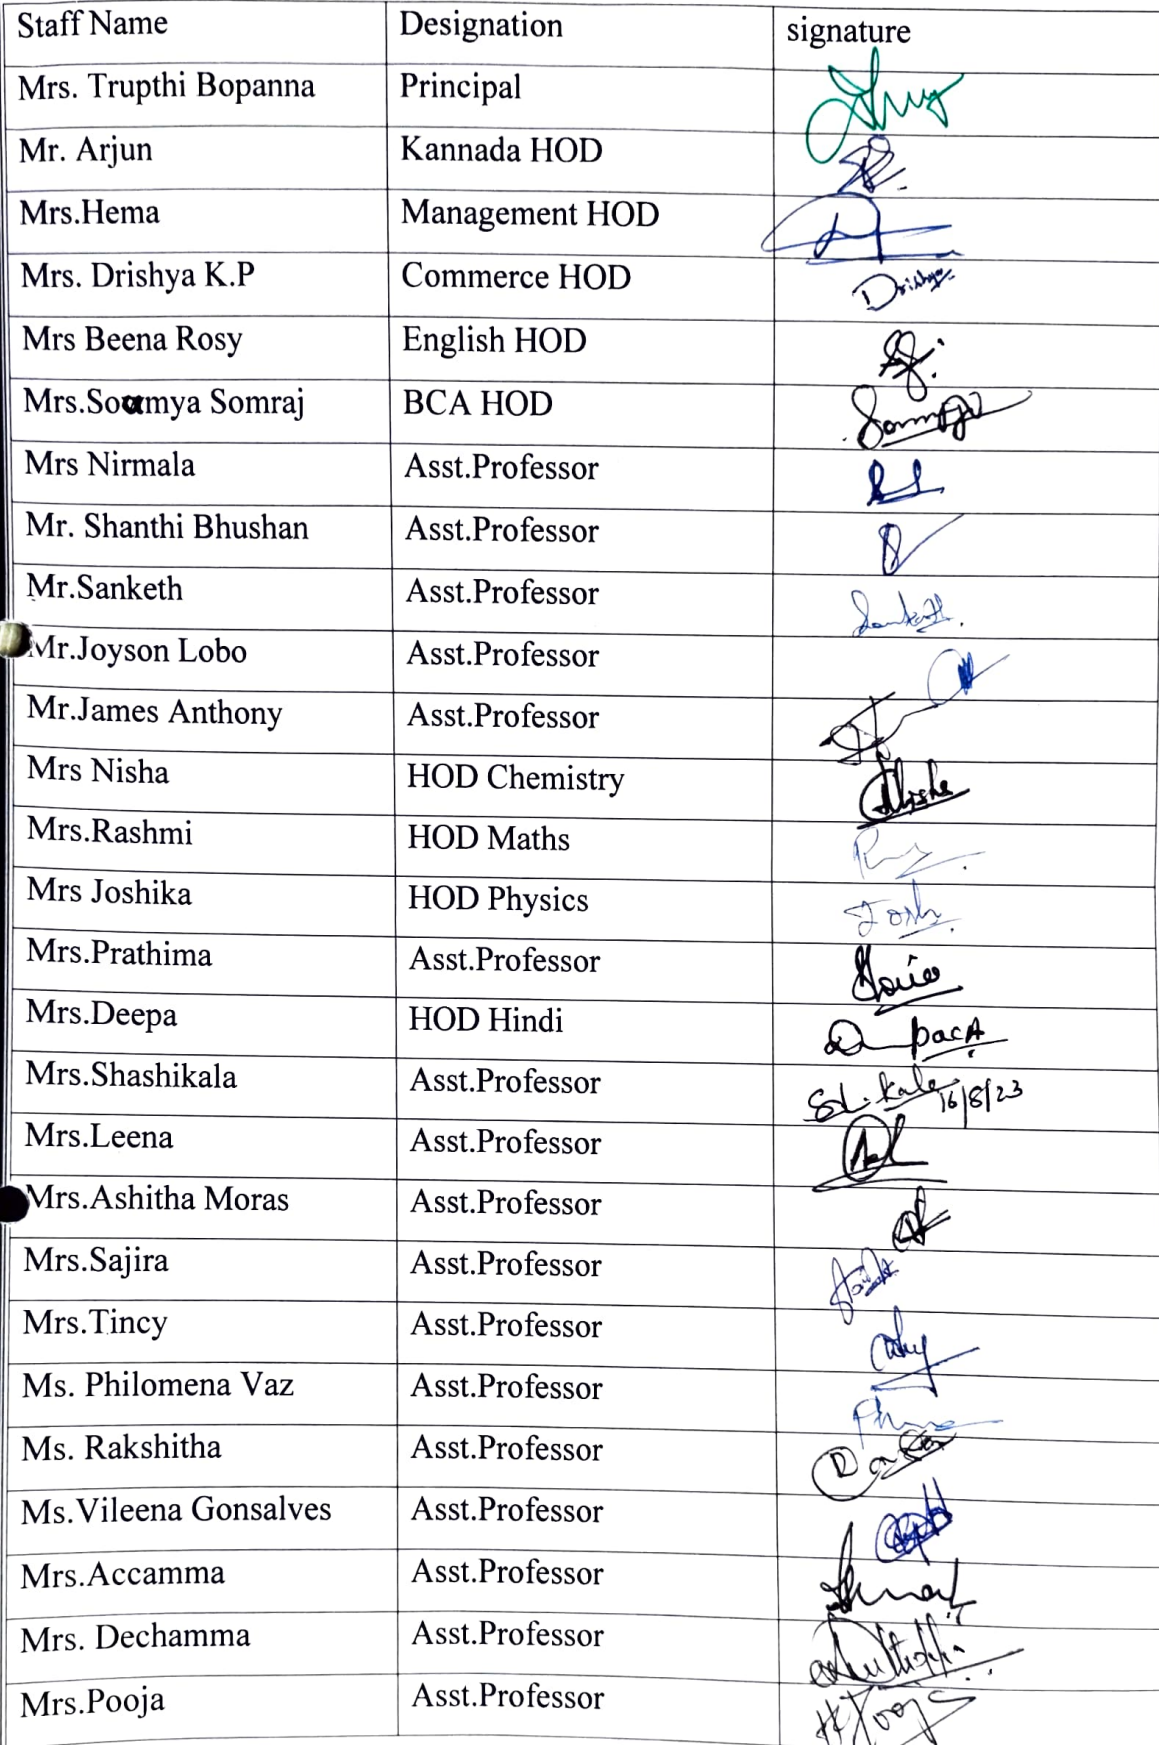 Staff Name Designation signature
Mrs. Trupthi Bopanna Principal
Mr. Arjun Kannada HOD
Mrs.Hema Management HOD
Mrs. Drishya K.P Commerce HOD Drishya
Mrs Beena Rosy English HOD
Mrs.Soumya Somraj BCA HOD
Mrs Nirmala Asst.Professor
Mr. Shanthi Bhushan Asst.Professor
Mr.Sanketh Asst.Professor Sanketh.
Mr.Joyson Lobo Asst.Professor
Mr.James Anthony Asst.Professor
Mrs Nisha HOD Chemistry Nisha
Mrs.Rashmi HOD Maths
Mrs Joshika HOD Physics Josh
Mrs.Prathima Asst.Professor
Mrs.Deepa HOD Hindi
Mrs.Shashikala Asst.Professor 16/8/23
Mrs.Leena Asst.Professor
Mrs.Ashitha Moras Asst.Professor
Mrs.Sajira Asst.Professor
Mrs.Tincy Asst.Professor
Ms. Philomena Vaz Asst.Professor
Ms. Rakshitha Asst.Professor
Ms.Vileena Gonsalves Asst.Professor
Mrs.Accamma Asst.Professor
Mrs. Dechamma Asst.Professor
Mrs.Pooja Asst.Professor Pooja